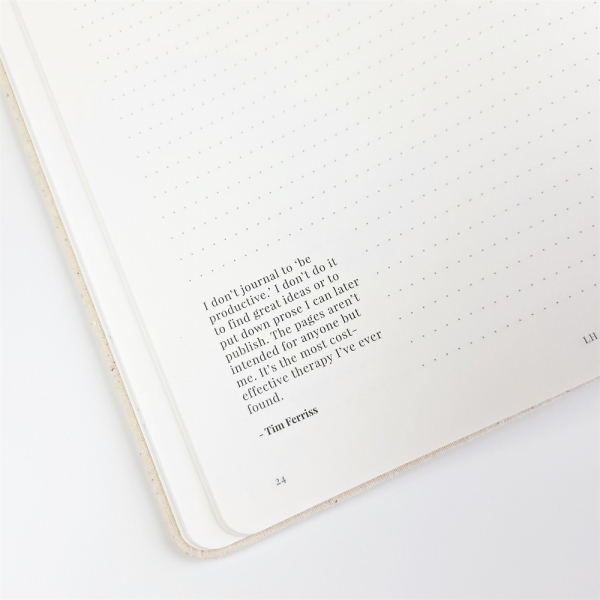 I don't journal to 'be
productive.' I don't do it
to find great ideas or to
put down prose I can later
publish. The pages aren't
intended for anyone but
me. It's the most cost-
effective therapy I've ever
found.
- Tim Ferriss
24
LH